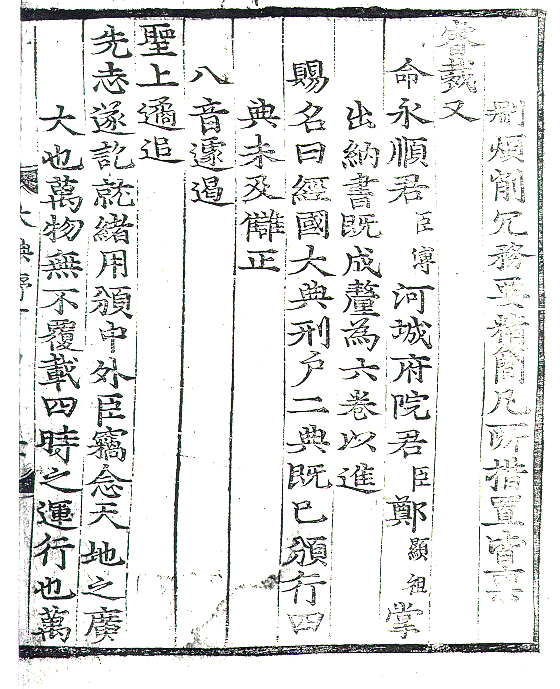 刪煩削冗務要精簡凡所措置皆稟
睿裁又
命永順君臣溥河城府院君臣鄭顯祖掌
出納書既成釐為六卷以進
賜名曰經國大典刑戶二典既已頒行四
典未及讎正
八音遽遏
聖上遹追
先志遂訖就緒用頒中外臣竊念天地之廣
大也萬物無不覆載四時之運行也萬
大典序